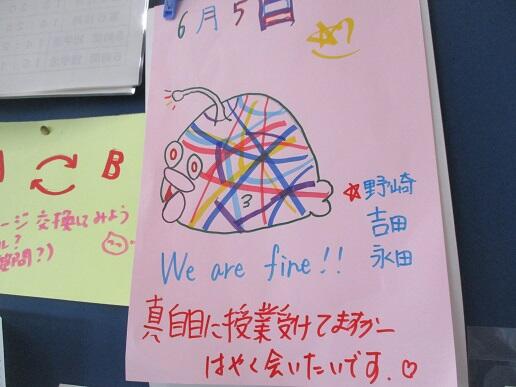 6月5日
We are fine!!
☆野崎
吉田
永田
真自目に授業受けてますかー
はやく会いたいです.♡
B
ージ交換してみよう